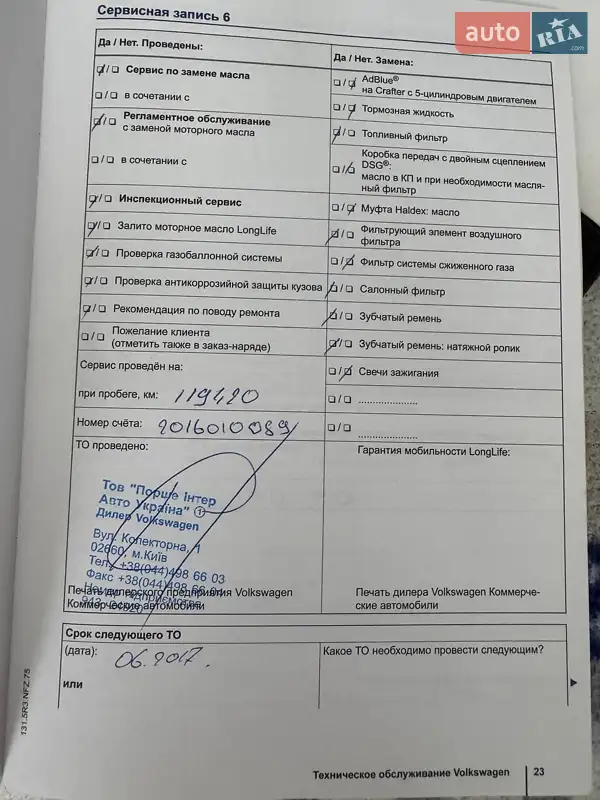 Сервисная запись 6
auto RIA .com
Да / Нет. Проведены:
/ Сервис по замене масла
/ в сочетании с
/ Регламентное обслуживание
с заменой моторного масла
/ в сочетании с
/ Инспекционный сервис
/ Залито моторное масло LongLife
/ Проверка газобаллонной системы
/ Проверка антикоррозийной защиты кузова
/ Рекомендация по поводу ремонта
/ Пожелание клиента
(отметить также в заказ-наряде)
Сервис проведён на:
при пробеге, км: 119420
Номер счёта: 2016010089
ТО проведено:
Тов "Порше Інтер
Авто Україна" 1
Дилер Volkswagen
Вул. Колекторна, 1
02660, м.Київ
Тел. +38(044)498 66 03
Факс +38(044)498 66 04
Печать дилерского предприятия Volkswagen
Коммерческие автомобили
Да / Нет. Замена:
/ AdBlue®
на Crafter с 5-цилиндровым двигателем
/ Тормозная жидкость
/ Топливный фильтр
/ Коробка передач с двойным сцеплением
DSG®:
масло в КП и при необходимости масля-
ный фильтр
/ Муфта Haldex: масло
/ Фильтрующий элемент воздушного
фильтра
/ Фильтр системы сжиженного газа
/ Салонный фильтр
/ Зубчатый ремень
/ Зубчатый ремень: натяжной ролик
/ Свечи зажигания
/ .....................
/ .....................
Гарантия мобильности LongLife:
Печать дилера Volkswagen Коммерче-
ские автомобили
Срок следующего ТО
(дата): 06.2017.
или
Какое ТО необходимо провести следующим?
131.5R3.NFZ.75
Техническое обслуживание Volkswagen 23